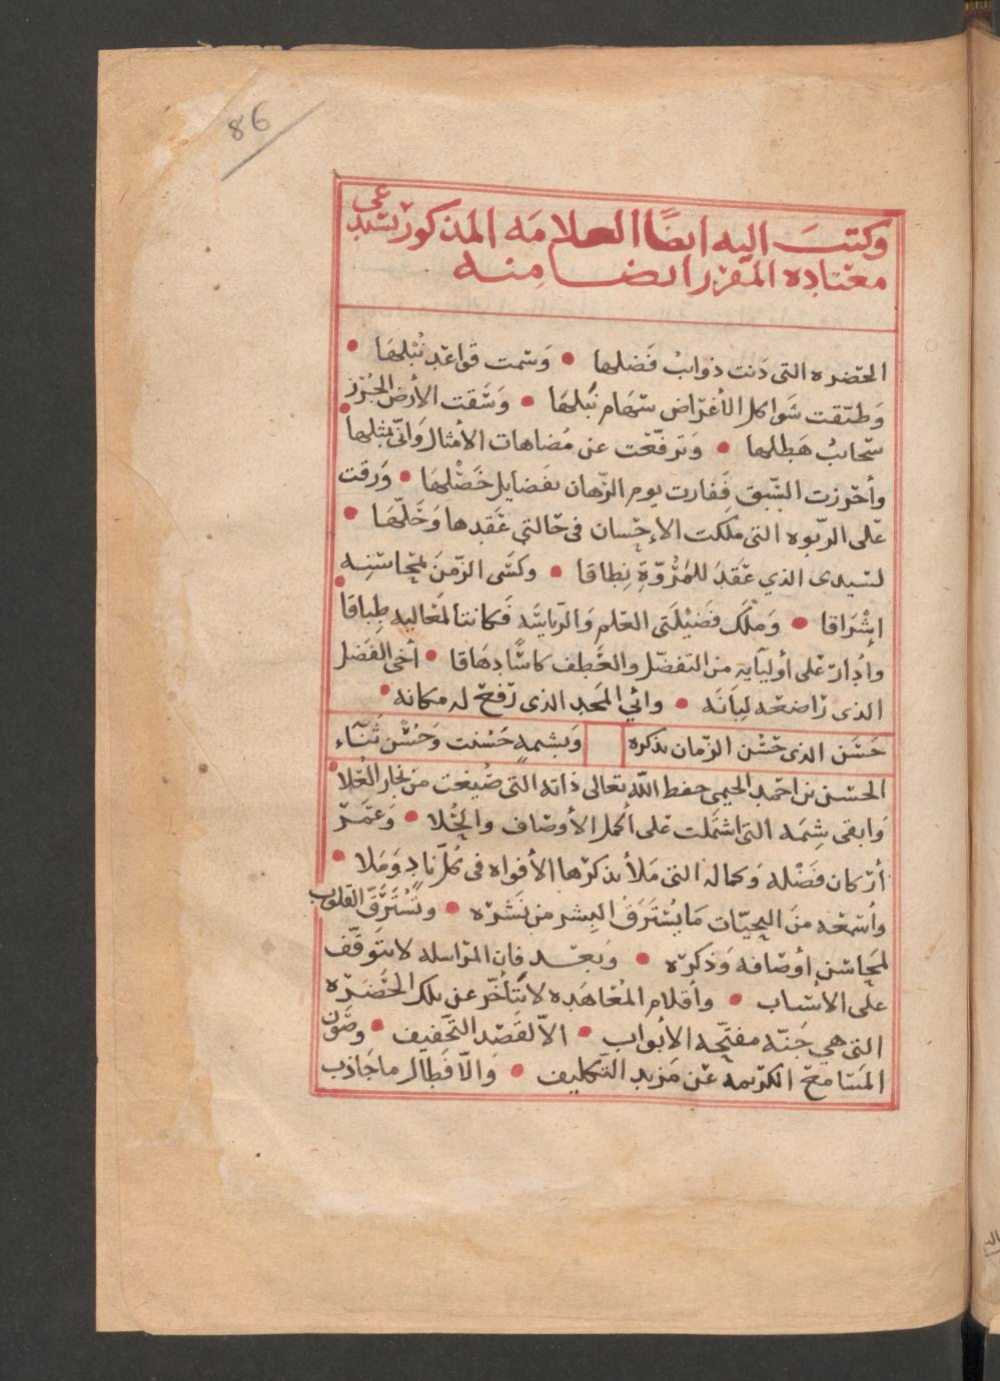 86
وكتبَ اليه ايضًا العلامَه المذكور يستدعى
معتاده المقرر ايضا مِنه
الحضره التى دَنت ذوايبُ فَضلها • وَسَمت قواعد نُبْلهَا •
وَطبّقت شَواكل الأغراض سهَام نَبْلهَا • وَسَقت الأرض الجُرُز
سَحائبُ هَطلها • وَترفّعت عن مُضاهات الأمثال وَأنّى بمثلها •
وأحرزت السّبق فَفارت يوم الرّهان بفَضايل خَصْلهَا • وَرقت
عَلى الربوه التى ملكت الإحسان فى حَالتي عَقدها وَحَلّهَا •
لسَيدى الذي عَقَدَ للمُرُوّةِ نِطاقا • وكسَى الزّمنَ لمحاسنِه
إشْرَاقا • وَملَك فضيْلَتى العَلم وَالرياسَه فكانتا لمعَاليه طِباقا •
وأدار عَلى أوليَآيه من التفضّل والعَطف كاسًا دِهَاقا • أخى الفَضل
الذى رَاضعَه لِبَانَه • وابي المَجد الذى رَفع له مكانه •
حَسَن الذى حَسُن الزّمان بذكره وَبشيمهٍ حَسُنت وَحُسْن ثَنَآء
الحسَن بن احمد الحيمى حفظ اللّه تعالى ذاته التى صُيغت من نجار العُلا •
وَابقى شِيَمَه التى اشتملت عَلى أكمل الأوصَاف والحُلا • وَعَمَّرَ
أرْكان فَضْله وَكماله التى مَلأ بذكرها الأفواه فى كلّ نادٍ وَمَلا •
وأسْمعَه منَ التحيّات مَا يُسْتَرَقُ البِشر من نَشره • وَتُسْتَرَقّ القلوب
لمحَاسن أوصَافه وَذكره • وَبعد فان المرَاسله لا تتوقّف
على الاسْباب • وأقلام المُعَاهَده لا تتَأخّر عن تلك الحَضره
التى هي جَنّه مفتّحه الأبواب • الاّ لقَصد التّخفيف • وصَون
المسَامع الكريمه عَن مَزيد التّكليف • وَالاّ فَطال ما جَاذب